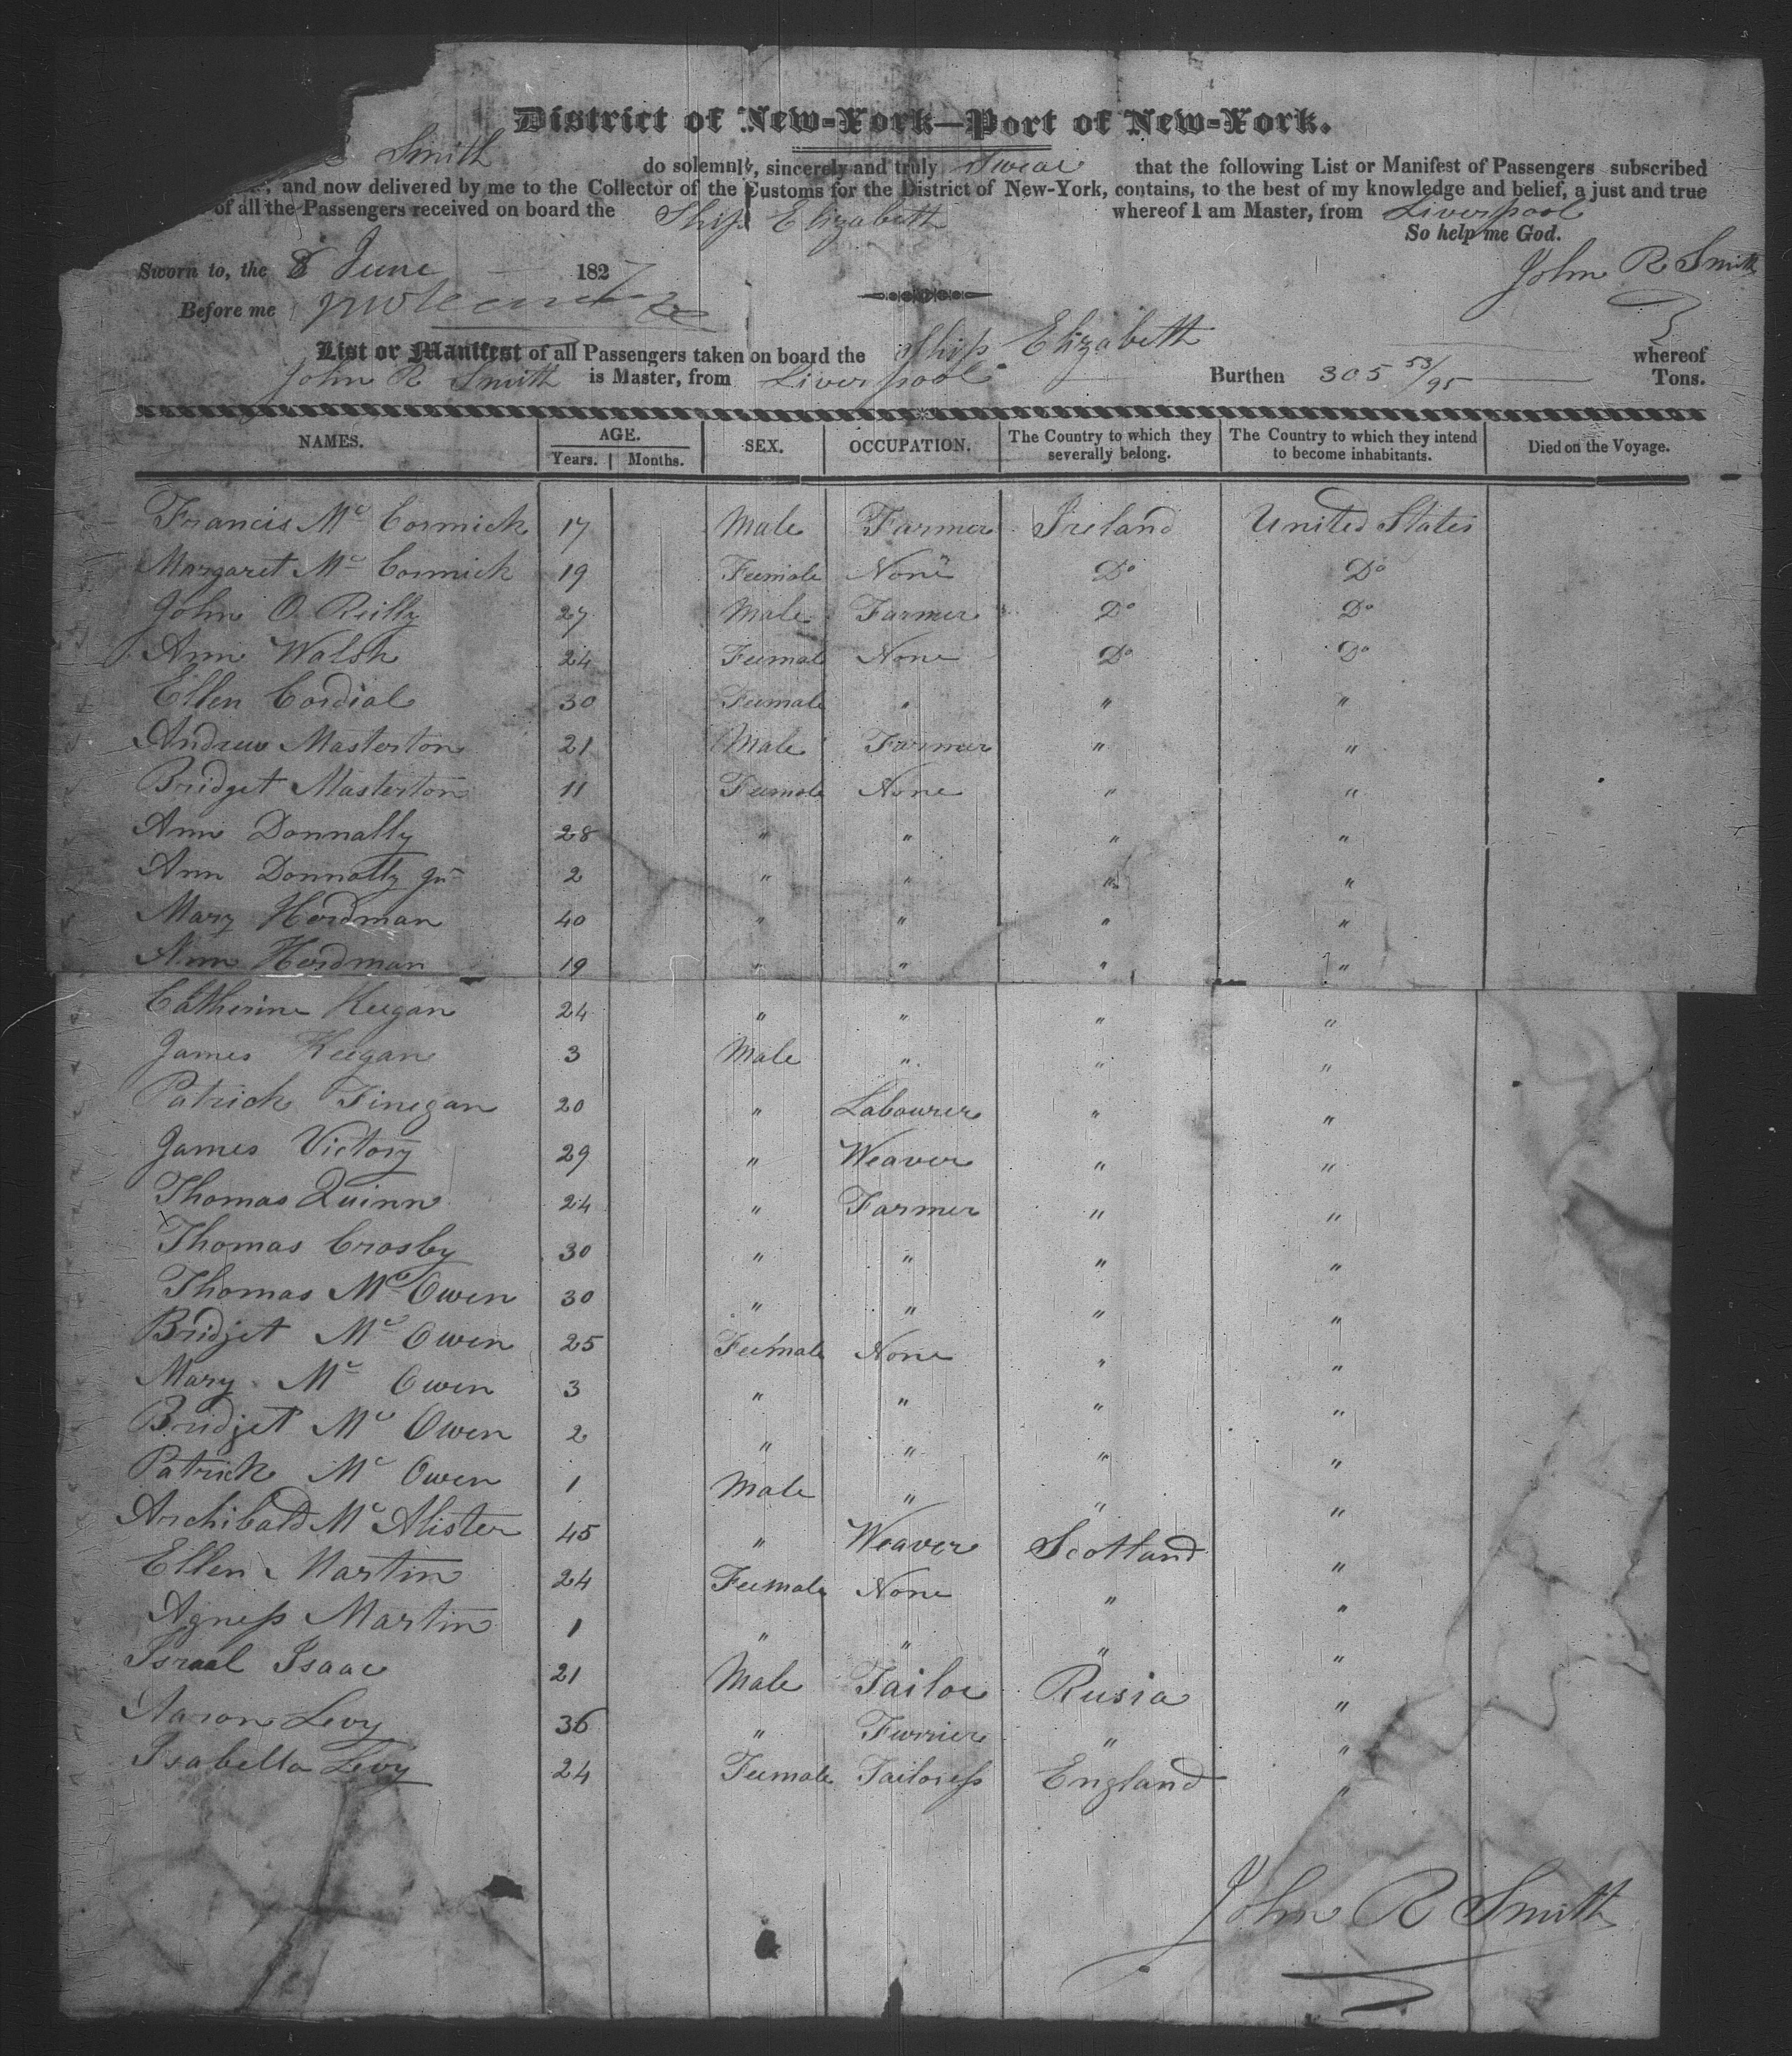 District of New-York—Port of New-York.
Smith do solemnly, sincerely and truly Swear that the following List or Manifest of Passengers subscribed
and now delivered by me to the Collector of the Customs for the District of New-York, contains, to the best of my knowledge and belief, a just and true
of all the Passengers received on board the Ship Elizabeth whereof I am Master, from Liverpool
So help me God.
Sworn to, the 8 June 1827 John R Smith
Before me
List or Manifest of all Passengers taken on board the Ship Elizabeth whereof
John R Smith is Master, from Liverpool Burthen 305 53/95 Tons.
NAMES. AGE. Years. Months. SEX. OCCUPATION. The Country to which they severally belong. The Country to which they intend to become inhabitants. Died on the Voyage.
Francis Mc Cormick 17 Male Farmer Ireland United States
Margaret Mc Cormick 19 Feemale None Do Do
John O. Reilly 27 Male Farmer Do Do
Ann Walsh 24 Feemale None Do Do
Ellen Cordial 30 Feemale " " "
Andrew Masterton 21 Male Farmer " "
Bridget Masterton 11 Feemale None " "
Ann Donnally 28 " " " "
Ann Donnally Jnr 2 " " " "
Mary Herdman 40 " " " "
Ann Herdman 19 " " " "
Catherine Keegan 24 " " " "
James Keegan 3 Male " " "
Patrick Finegan 20 " Labourer " "
James Victory 29 " Weaver " "
Thomas Quinn 24 " Farmer " "
Thomas Crosby 30 " " " "
Thomas Mc Owen 30 " " " "
Bridjet Mc Owen 25 Feemale None " "
Mary Mc Owen 3 " " " "
Bridjet Mc Owen 2 " " " "
Patrick Mc Owen 1 Male " " "
Archibald Mc Alister 45 " Weaver Scotland "
Ellen Martin 24 Feemale None " "
Agness Martin 1 " " " "
Israal Isaac 21 Male Tailor Rusia "
Aaron Levy 36 " Furrier " "
Isabella Levy 24 Feemale Tailoress England "
John R Smith